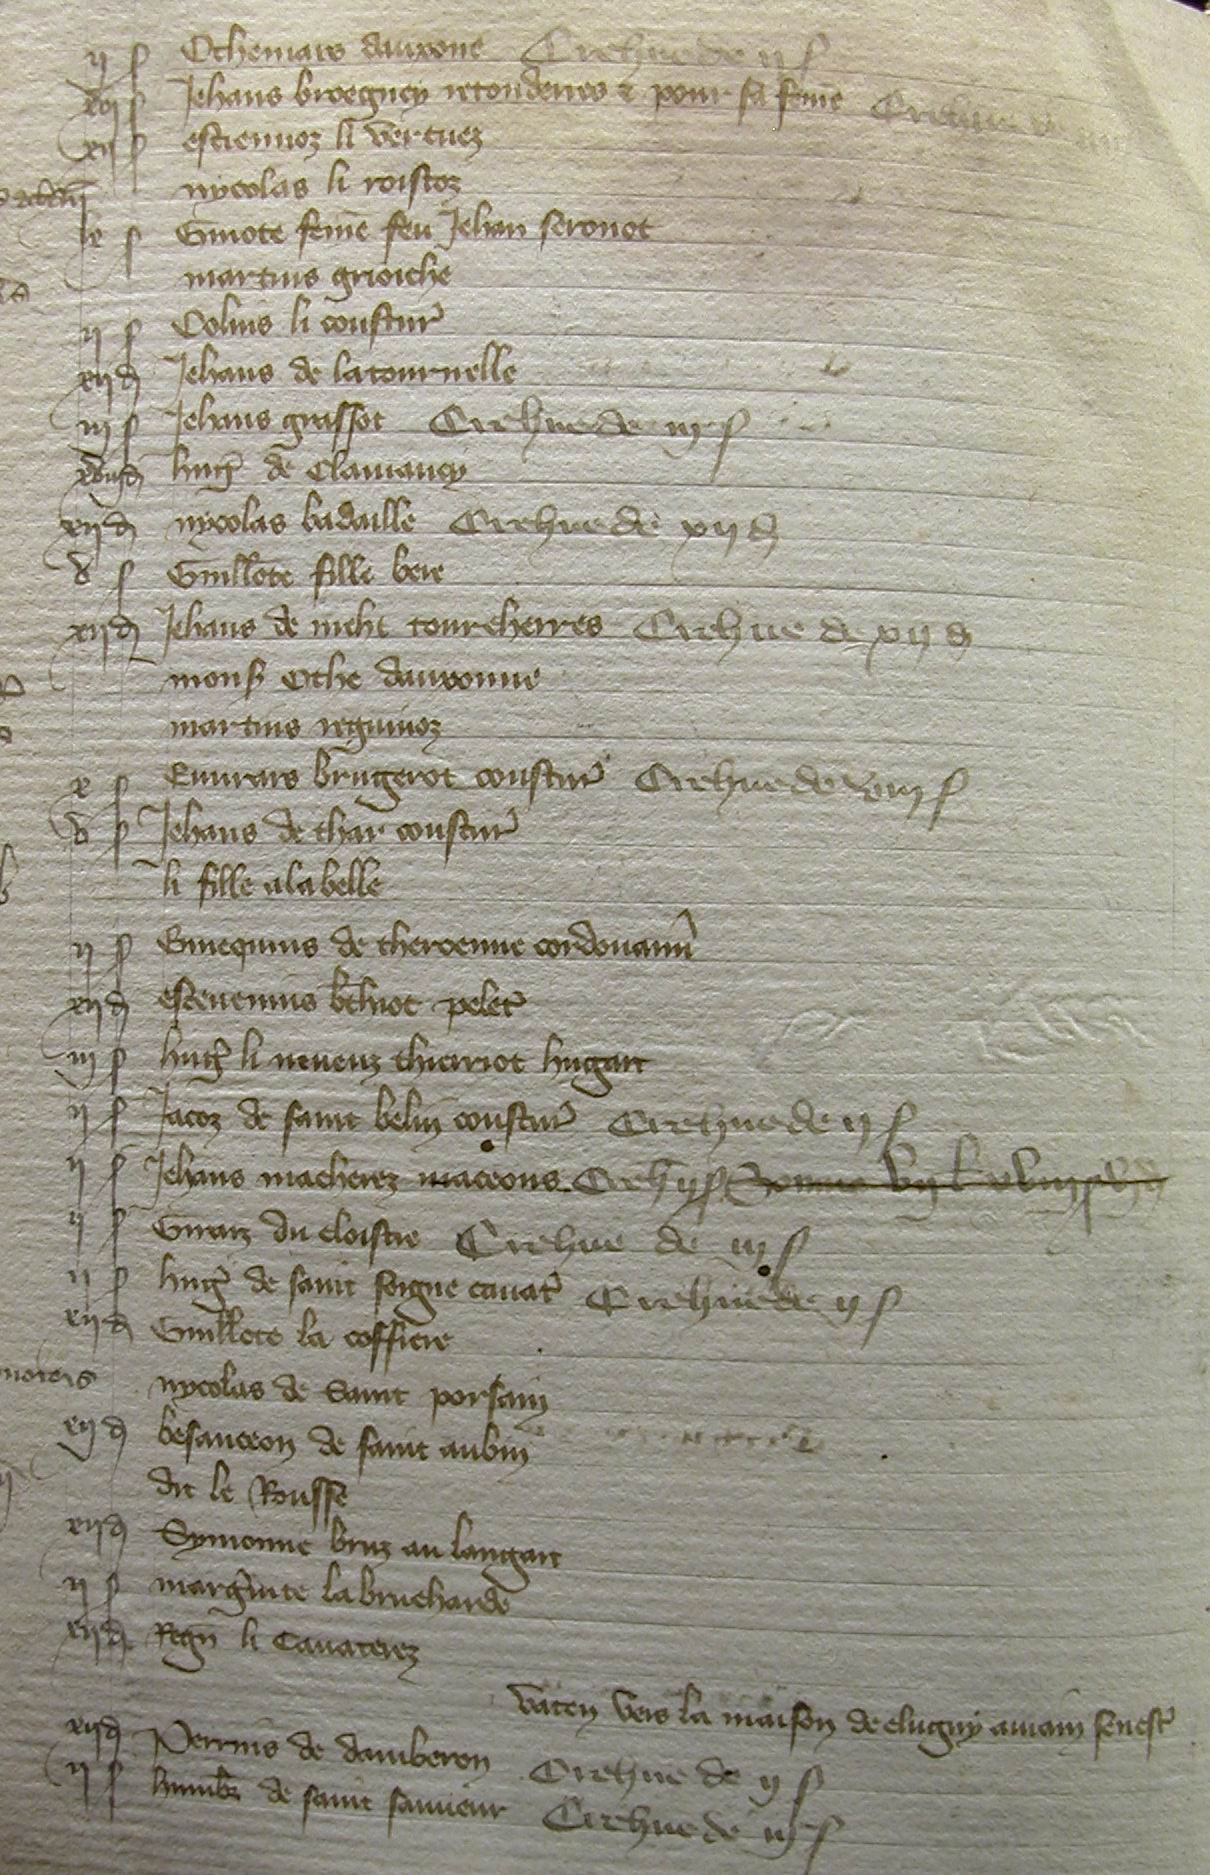 ij s Othenins dauxone Crehue de ij s
xij s Jehans broigney retonderres & pour sa feme Crehue de
xij s estiennoz li vertuez
nycolas li roistoz
lx s Guiote feme feu Jehan seronot
martins grioiche
ij s Colins li coustur
xij d Jehans de latournelle
iij s Jehans grassot Crehue de iij s
xviij d hug de Clamancy
xij d nycolas badaille Crehue de xij d
v s Guillote fille bere
xij d Jehans de tourcherres Crehue de xij d
mons Othe dauxonne
martins reguinoz
x s brugerot coustur Crehue de viij s
v s Jehans de thar coustur
li fille alabelle
ij s de theroenne cordouann
xij d estevenins bthiot pelet
iij s hug li neveuz thierriot hugart
ij s Jacoz de saint belin coustur Crehue de ij s
ij s Jehans macherez maceons Creh ij s
ij s Girarz du cloistre Crehue de iij s
ij s hug de saint soigne cavat Crehue de ij s
xij d Guillote la coffiere
nycolas de Saint porsain
xij d besanceon de saint aubin
dit le Rousse
xij d Symonne bruz au langart
ij s margrite la brucharde
xij d Regn li Cavaterez
vaten vers la maison de clugny amain senest
xij d Perrins de damberon Crehue de ij s
ij s humb de saint sauveur Crehue de iij s